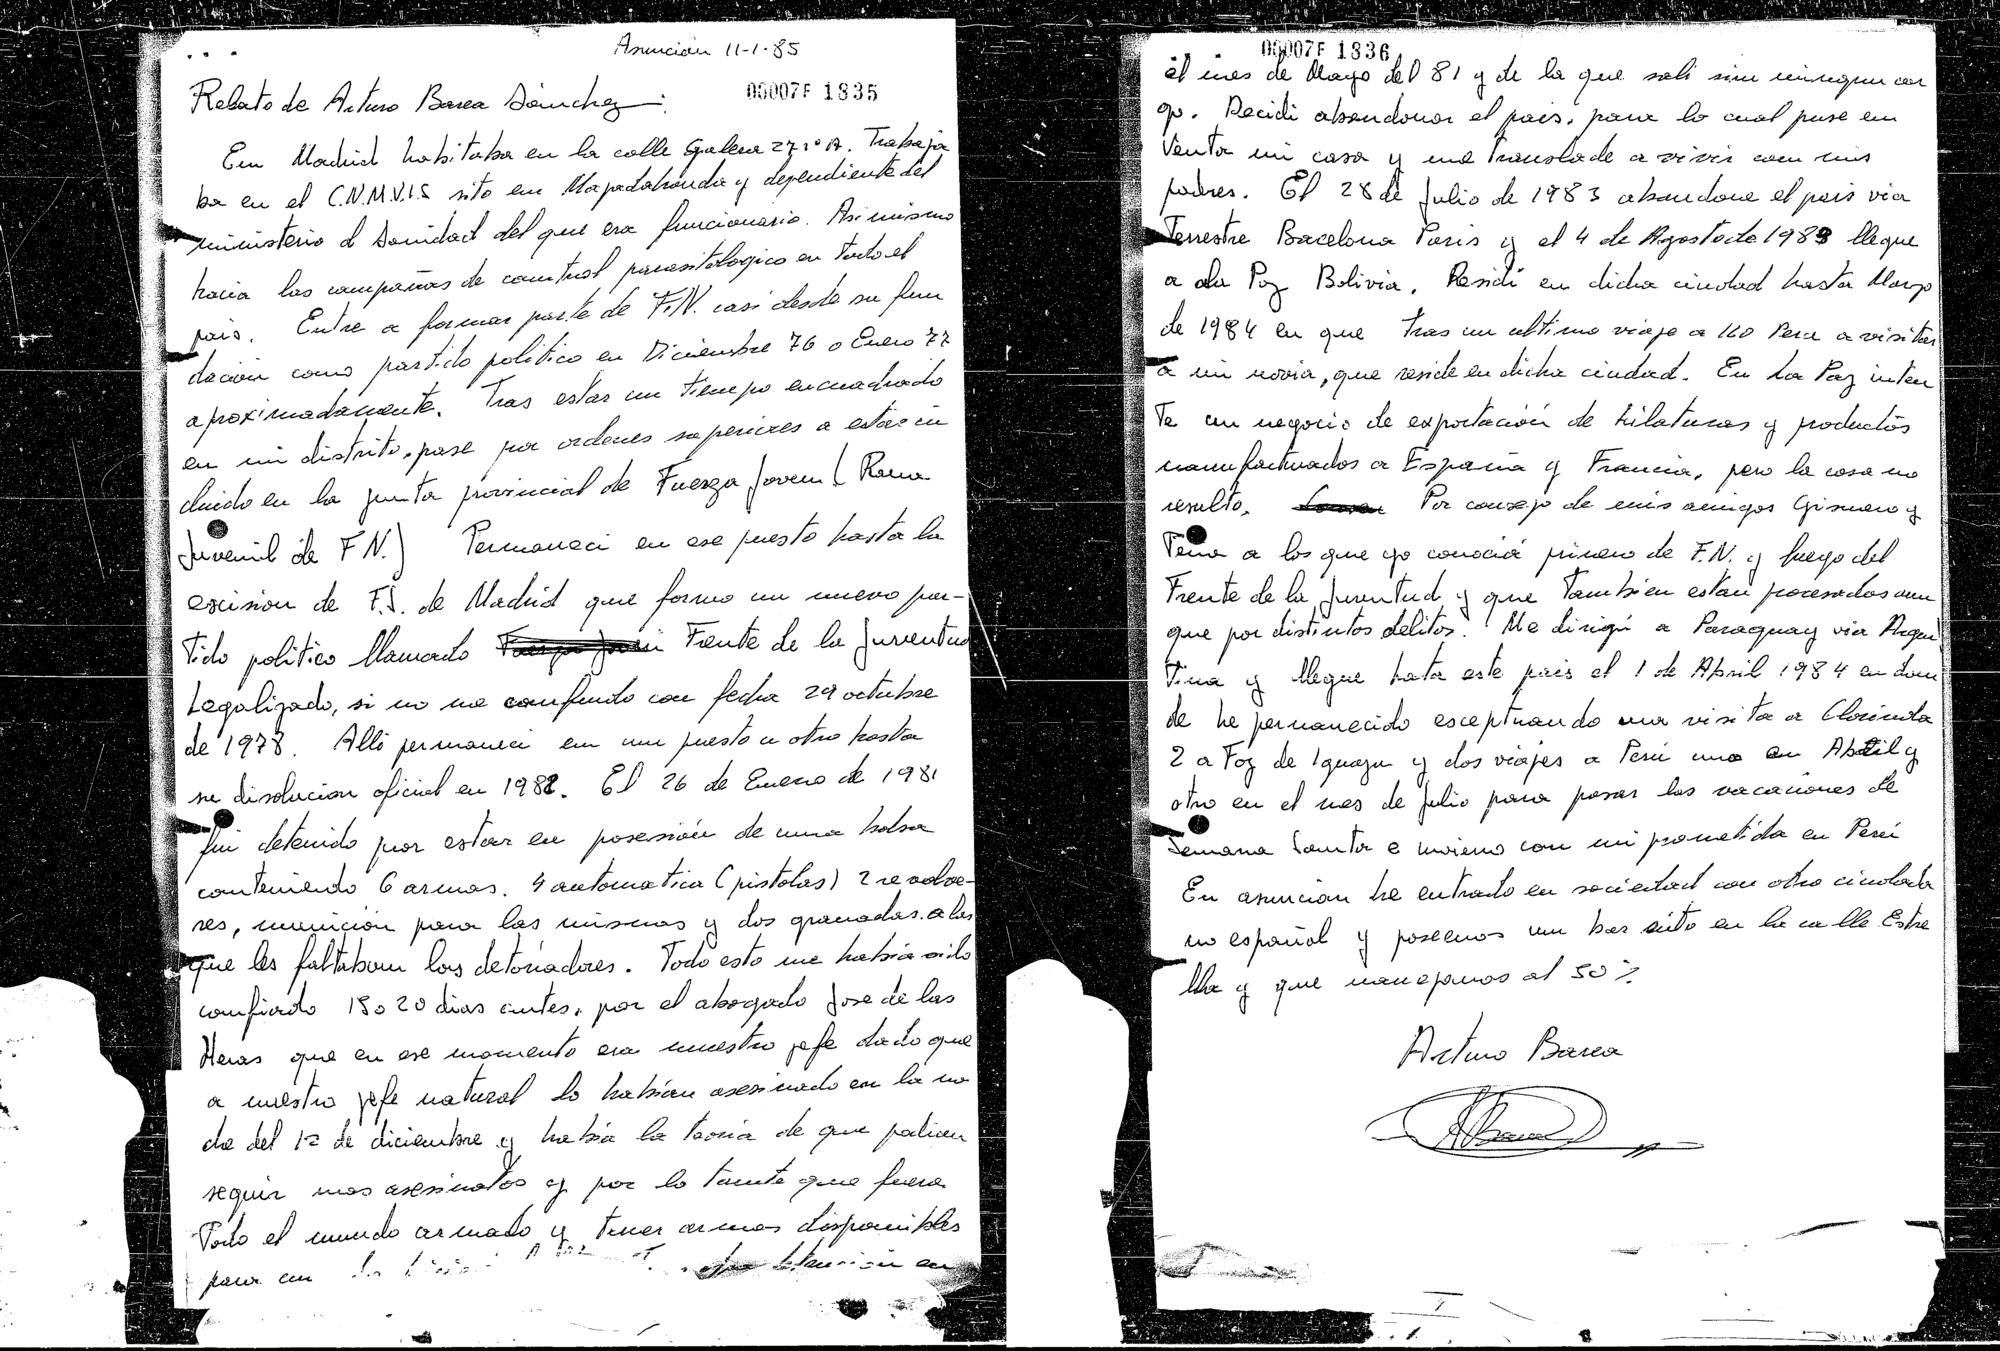 Asunción 11-1-85
00007F 1835
Relato de Arturo Barea Sánchez:
En Madrid habitaba en la calle Galera 27 1º A. Trabaja
ba en el C.N.M.V.I.S sito en Majadahonda y dependiente del
ministerio d Sanidad del que era funcionario. Asi mismo
hacia las compañas de control parasitologico en todo el
pais. Entre a formar parte de F.N. casi desde su fun
dación como partido politico en Diciembre 76 o Enero 77
aproximadamente. Tras estar un tiempo encuadrado
en mi distrito, pase por ordenes superiores a estar in
cluido en la junta provincial de Fuerza Joven (Rama
Juvenil de F.N.) Permaneci en ese puesto hasta la
escision de F.J. de Madrid que formo un nuevo par-
tido politico llamado Frente de la Juventud
Legalizado, si no me confundo con fecha 29 octubre
de 1978. Alli permaneci en un puesto u otro hasta
su disolucion oficial en 1982. El 26 de Enero de 1981
fui detenido por estar en posesión de una bolsa
conteniendo 6 armas. 4 automatica (pistolas) 2 revolve-
res, munición para las mismas y dos granadas. a las
que les faltaban los detonadores. Todo esto me habia sido
confiado 15 o 20 dias antes, por el abogado Jose de las
Heras que en ese momento era nuestro jefe dado que
a nuestro jefe natural lo habian asesinado en la no
che del 12 de diciembre y habia la teoria de que podian
seguir mas asesinatos y por lo tanto que fuera
Todo el mundo armado y tener armas disponibles
para un detención en
00007F 1836
el mes de Mayo del 81 y de la que sali sin ningun car
go. Decidi abandonar el pais, para lo cual puse en
Venta mi casa y me translade a vivir con mis
padres. El 28 de Julio de 1983 abandone el pais via
Terrestre Bacelona Paris y el 4 de Agosto de 1983 llegue
a la Paz Bolivia. Residi en dicha ciudad hasta Marzo
de 1984 en que tras un ultimo viaje a ILO Peru a visitar
a mi novia, que reside en dicha ciudad. En La Paz inten
Te un negocio de exportación de hilaturas y productos
manufacturados a España y Francia, pero la cosa no
resulto. Por consejo de mis amigos Gismero y
a los que yo conociá primero de F.N. y luego del
Frente de la Juventud y que tambien estan procesados aun
que por distintos delitos. Me dirigi a Paraguay via Argen
Tina y llegue hata este pais el 1 de Abril 1984 en don
de he permanecido esceptuando una visita a Clorinda
2 a Foz de Iguazu y dos viajes a Perú uno en Abril y
otro en el mes de julio para pasar las vacaciones de
Semana Santa e invierno con mi prometida en Perú
En asuncion he entrado en sociedad con otro ciudada
no español y poseemos un bar sito en la calle Estre
lla y que manejamos al 50%
Arturo Barea
ABarea